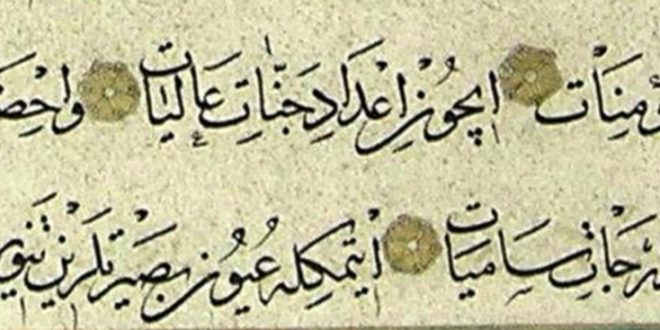 ؤمِنَاتْ ايچُونْ اِعْدَادِ جَنَّاتِ عَالِيَاتْ وَاحْضَ
دَرَجَاتِ سَامِيَاتْ اِيْتمكِله عُيُونِ بَصِيْرَتْلَرِيْنْ تَنْوِي